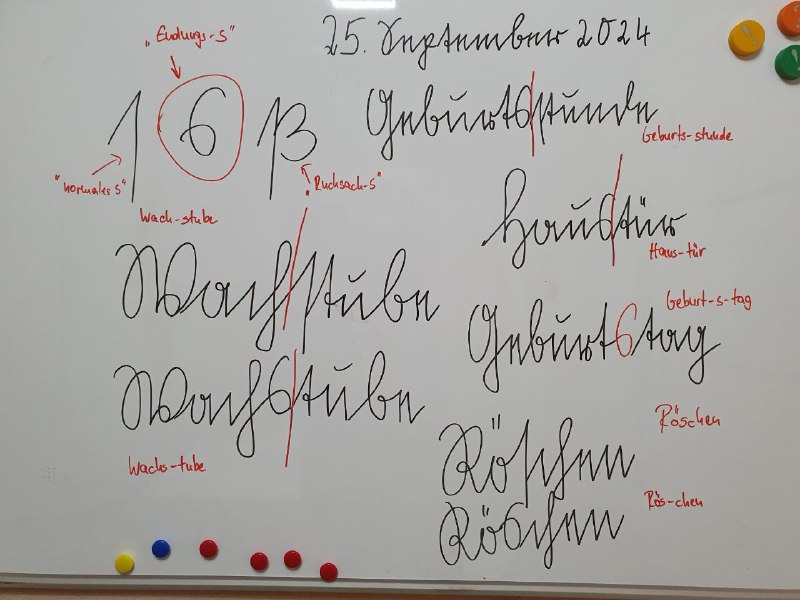 25. September 2024
„Endungs-S"
ſ s ß
"normales S"
„Rucksack-S"
Geburtsſtunde
Geburts-stunde
Haustür
Haus-tür
Wach-stube
Wachſtube
Geburt-s-tag
Geburtstag
Wachstube
Wachs-tube
Röschen
Röſchen
Rös-chen
Röschen